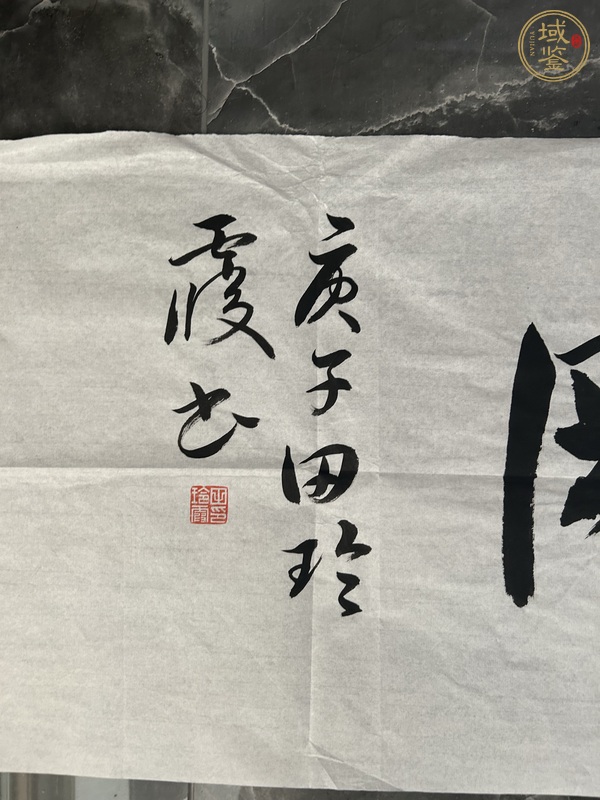 庚子田玲
霞书
田玲霞印
域鉴
YUJIAN